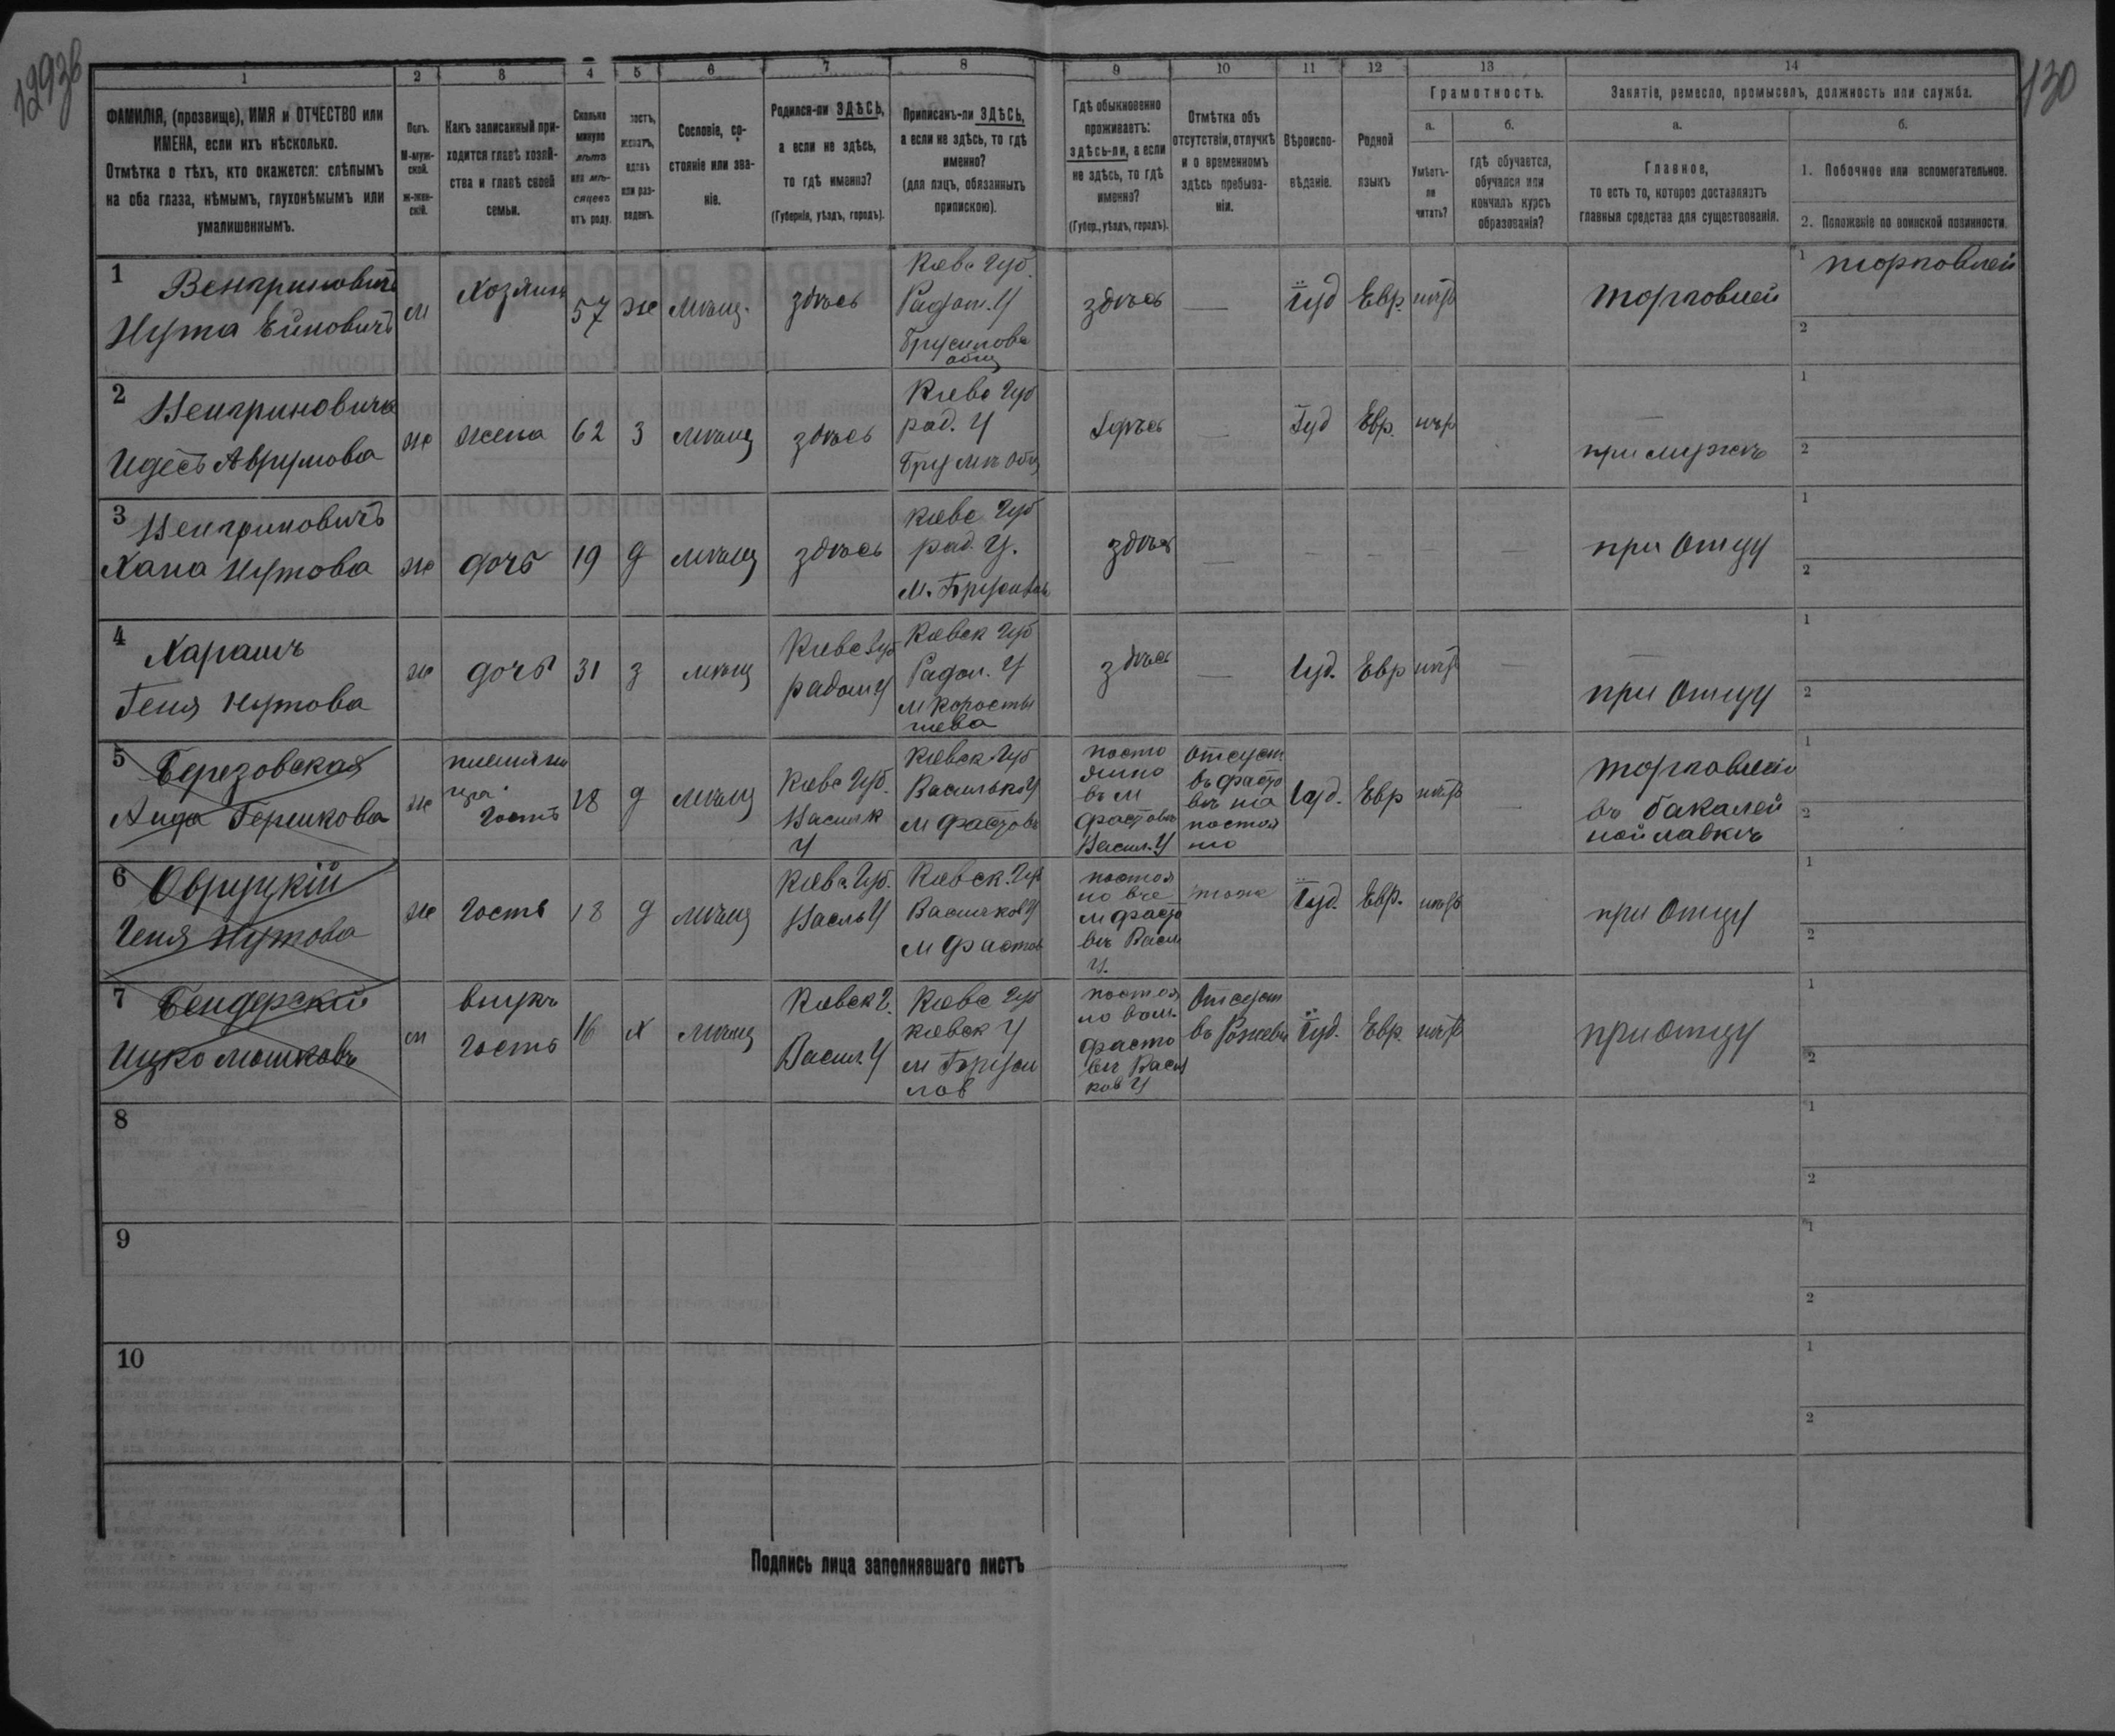 130
1 2 3 4 5 6 7 8 9 10 11 12 13 14
ФАМИЛІЯ, (прозвище), ИМЯ и ОТЧЕСТВО или
ИМЕНА, если ихъ нѣсколько.
Отмѣтка о тѣхъ, кто окажется: слѣпымъ
на оба глаза, нѣмымъ, глухонѣмымъ или
умалишеннымъ.
Полъ.
М-муж-
ской.
ж-жен-
скій.
Какъ записанный при-
ходится главѣ хозяй-
ства и главѣ своей
семьи.
Сколько
минуло
лѣтъ
или мѣ-
сяцевъ
отъ роду.
лостъ,
женатъ,
вдовъ
или раз-
веденъ.
Сословіе, со-
стояніе или зва-
ніе.
Родился-ли ЗДѢСЬ,
а если не здѣсь,
то гдѣ именно?
(Губернія, уѣздъ, городъ).
Приписанъ-ли ЗДѢСЬ,
а если не здѣсь, то гдѣ
именно?
(для лицъ, обязанныхъ
припискою).
Гдѣ обыкновенно
проживаетъ:
здѣсь-ли, а если
не здѣсь, то гдѣ
именно?
(Губер., уѣздъ, городъ).
Отмѣтка объ
отсутствіи, отлучкѣ
и о временномъ
здѣсь пребыва-
ніи.
Вѣроиспо-
вѣданіе.
Родной
языкъ
Грамотность.
а.
Умѣетъ-
ли
читать?
б.
гдѣ обучается,
обучался или
кончилъ курсъ
образованія?
Занятіе, ремесло, промыселъ, должность или служба.
а.
Главное,
то есть то, которое доставляетъ
главныя средства для существованія.
б.
1. Побочное или вспомогательное.
2. Положеніе по воинской повинности.
1
Венгриновичъ
Нута Ейновичъ
м
Хозяинъ
57
же
мѣщ.
здѣсь
Кіевс Губ.
Радом. У
Брусилова
общ
здѣсь
—
Іуд
Евр.
нѣтъ
торговлей
1 торговлей
2
2
Венгриновичъ
Идесь Аврумова
же
жена
62
з
мѣщ
здѣсь
Кіевс Губ
рад. У
здѣсь
—
Іуд
Евр.
—
при мужѣ
1
2
3
Венгриновичъ
Хана Нутова
же
дочь
19
д
мѣщ
здѣсь
Кіевс Губ
рад. У.
здѣсь
— — — — —
при Отцу
1
2
4
Харашъ
Геня Нутова
же
дочь
31
з
мѣщ
Кіевс Губ
радом У
Кіевск Губ
Радом. У
м Коросты
шева
здѣсь
—
Іуд.
Евр
нѣтъ
—
—
при Отцу
1
2
5
Березовская
Герикова
же
племянн
ица
Гость
18
д
мѣщ
Кіевс Губ.
Василк
У
Кіевск. Губ
Васильк У
м Фастовъ
посто
янно
въ м
Фастовъ
Васил. У
Отсуст
въ Фасто
вѣ на
постоя
но
Іуд.
Евр
нѣтъ
—
торговлею
въ бакалей
ной лавкѣ
1
2
6
Овруцкій
Геня Нутова
же
Гость
18
д
мѣщ
Кіевс. Губ.
Васил У
Кіевск. Губ
Васильков У
м Фастов
постоя
но въ
м Фасто
вѣ Васил
У.
тоже
Іуд.
Евр.
нѣтъ
при Отцу
1
2
7
Бендерскій
Ицко Мошковъ
м
внукъ
Гость
16
х
мѣщ
Кіевск Г.
Васил. У
Кіевс Губ
Кіевск У
м Бруси
лов
постоя
но
Фасто
вѣ Васил
ков У
Отсуст
Іуд.
Евр.
нѣтъ
при отцу
1
2
8
1
2
9
1
2
10
1
2
Подпись лица заполнявшаго листъ